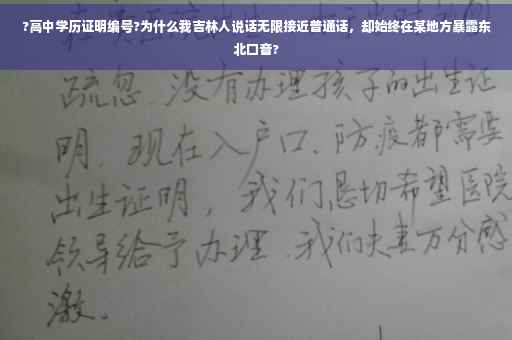 ?高中学历证明编号?为什么我吉林人说话无限接近普通话，却始终在某地方暴露东
北口音?
疏忽.没有办理孩子的出生证
明.现在入户口、防疫都需要
出生证明，我们恳切希望医院
领导给予办理.我们夫妻万分感
激.